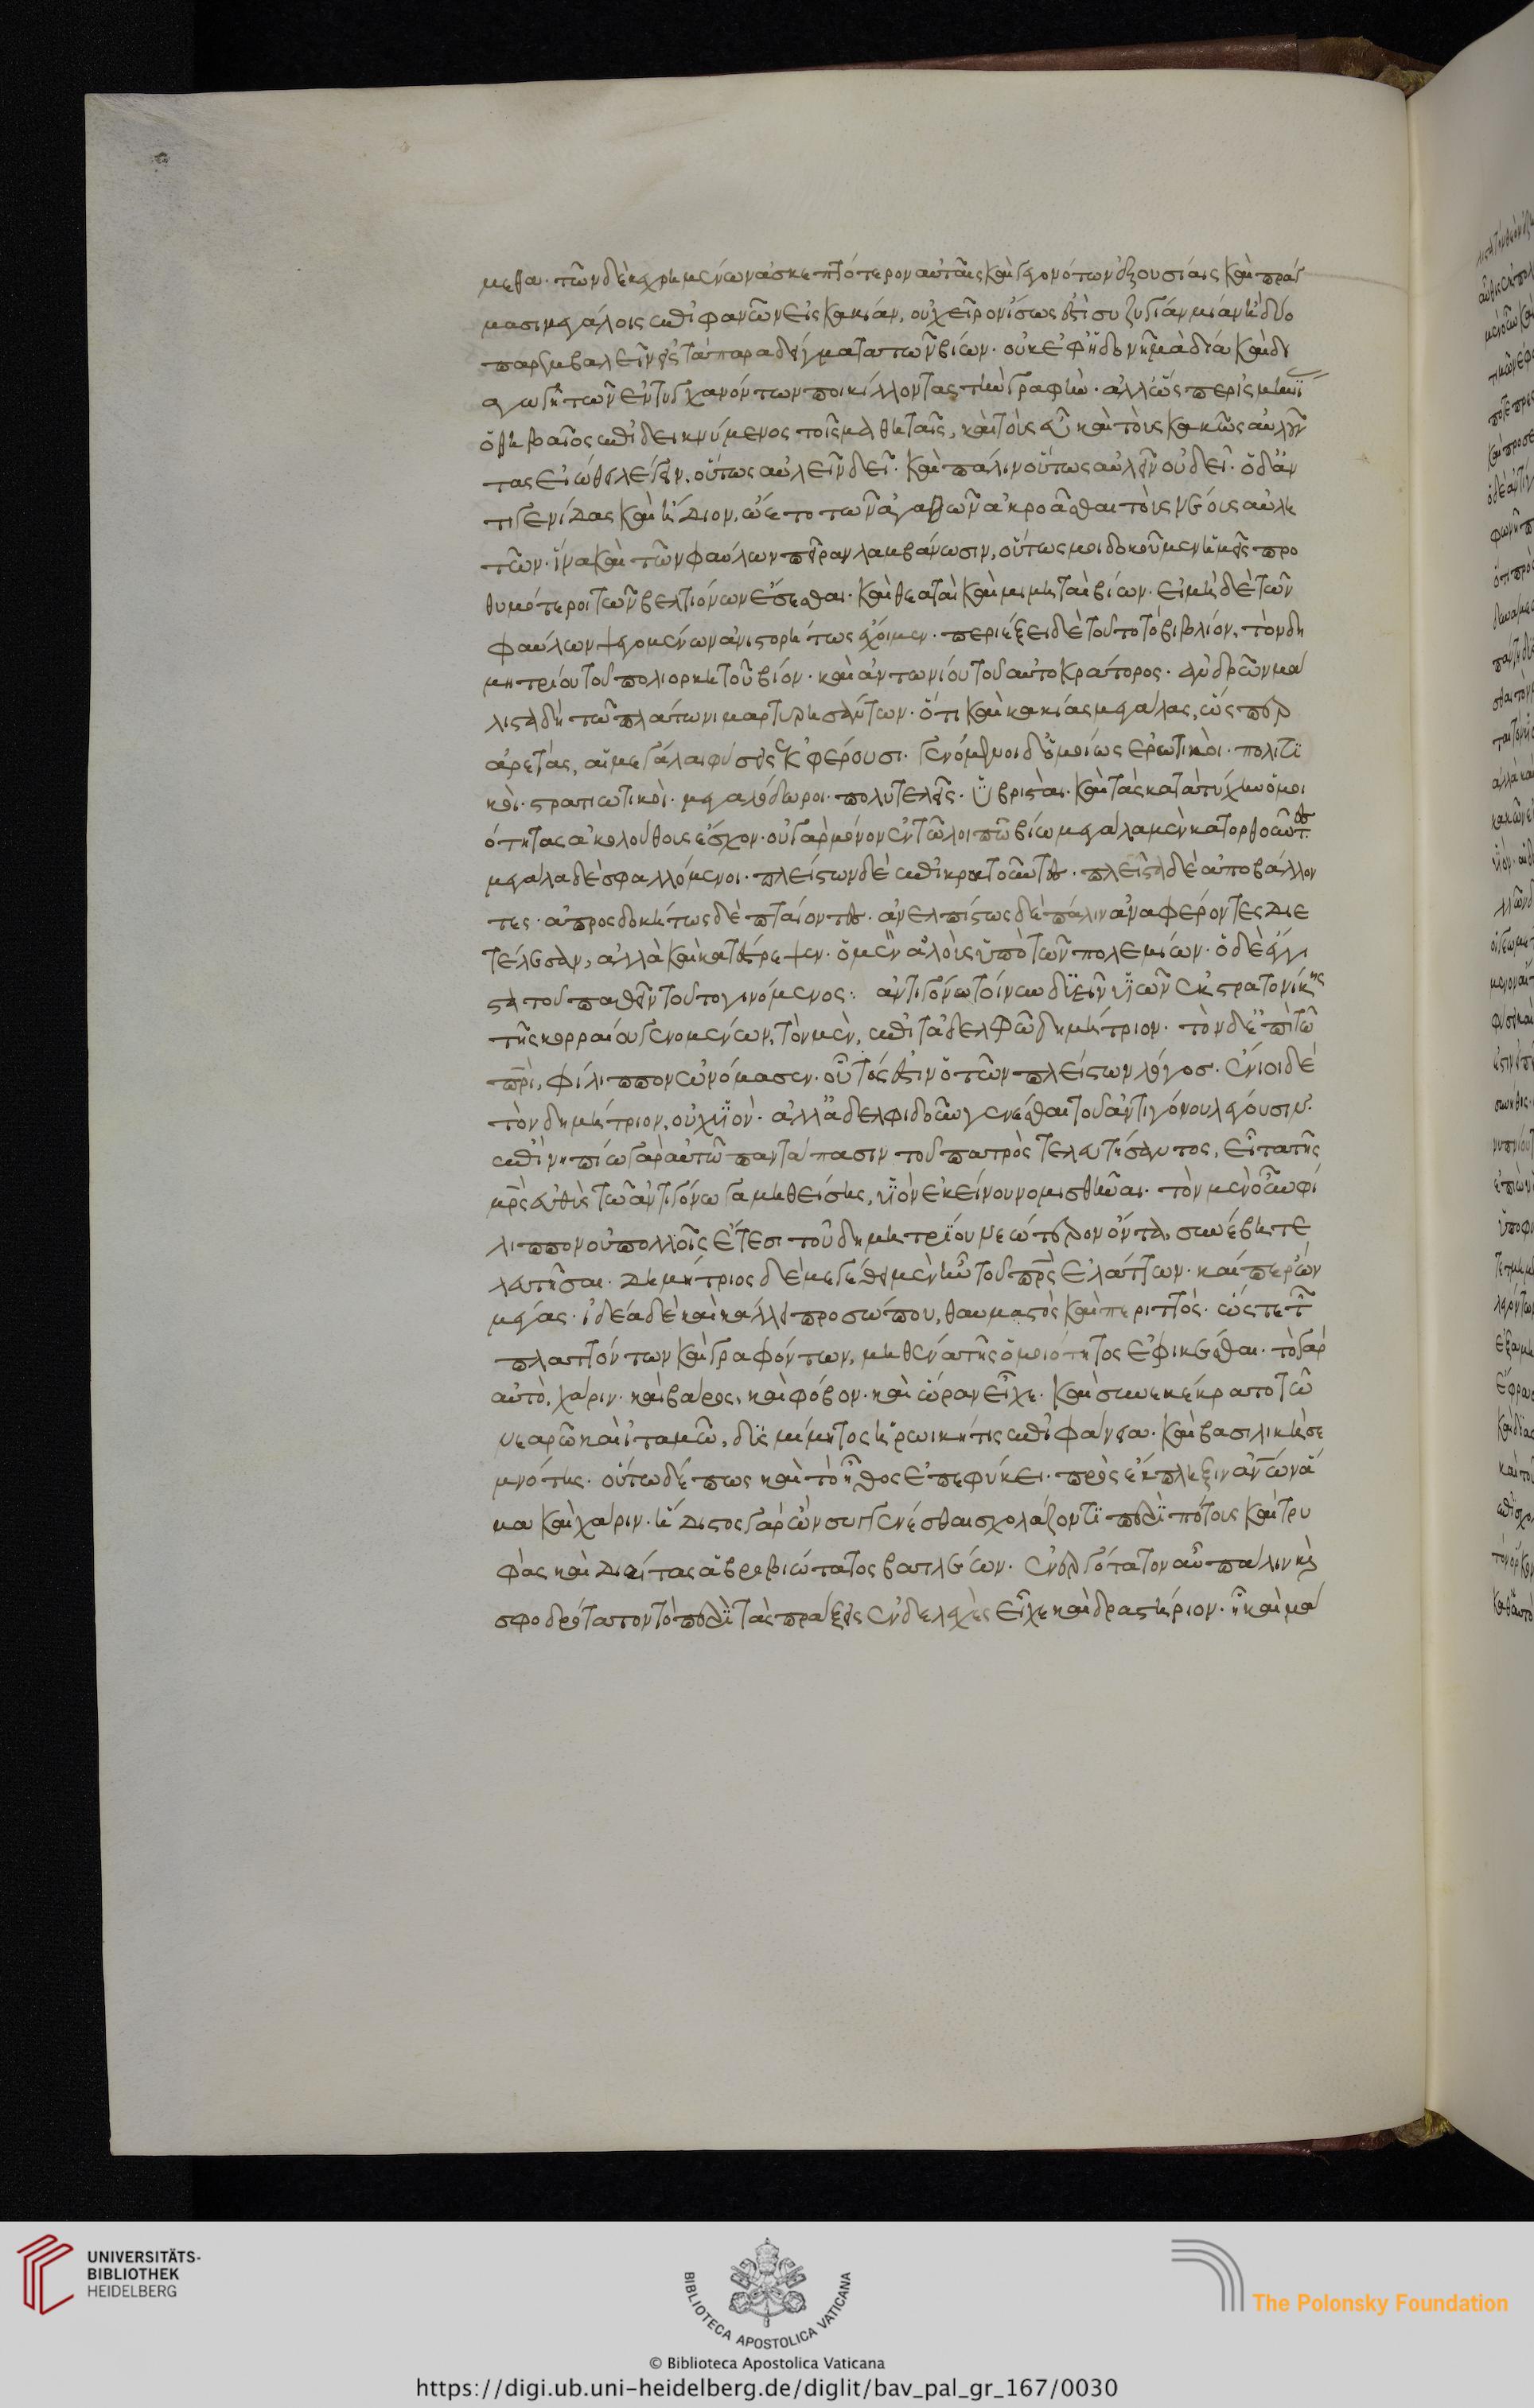 μεθα· τῶν δὲ κεχρημένων ἀσκεπτότερον αὑτοῖς καὶ γεγονότων ἐξουσίαις καὶ πράγ
μασι μεγάλοις ἐπιφανῶν εἰς κακίαν, οὐ χεῖρον ἴσως ἐστὶ συζυγίαν μίαν ἢ δύο
παρεμβαλεῖν εἰς τὰ παραδείγματα τῶν βίων· οὐκ ἐφ' ἡδονῇ μὰ δία καὶ δι
αγωγῇ τῶν ἐντυγχανόντων ποικίλλοντας τὴν γραφὴν· ἀλλ' ὥσπερ ἰσμηνί
ας
ὁ θηβαῖος ἐπιδεικνύμενος τοῖς μαθηταῖς, καὶ τοὺς εὖ καὶ τοὺς κακῶς αὐλοῦν
τας εἰώθει λέγειν, οὕτως αὐλεῖν δεῖ· καὶ πάλιν οὕτως αὐλεῖν οὐ δεῖ· ὁ δ' ἀν
τιγενίδας καὶ ἥδιον, ᾤετο τῶν ἀγαθῶν ἀκροᾶσθαι τοὺς νέους αὐλη
τῶν· ἵνα καὶ τῶν φαύλων πεῖραν λαμβάνωσιν, οὕτως μοι δοκοῦμεν ἡμεῖς προ
θυμότεροι τῶν βελτιόνων ἔσεσθαι· καὶ θεαταὶ καὶ μιμηταὶ βίων· εἰ μηδὲ τῶν
φαύλων ψεγομένων ἀνιστορήτως ἔχοιμεν· περιέξει δὲ τοῦτο τὸ βιβλίον, τὸν δη
μητρίου τοῦ πολιορκητοῦ βίον· καὶ ἀντωνίου τοῦ αὐτοκράτορος· ἀνδρῶν μά
λιστα δὴ τῷ πλάτωνι μαρτυρησάντων· ὅτι καὶ κακίας μεγάλας, ὥσπερ
ἀρετάς, αἱ μεγάλαι φύσεις ἐκφέρουσι· γενόμενοι δ' ὁμοίως ἐρωτικοὶ· ποτι
κοὶ· στρατιωτικοὶ· μεγαλόδωροι· πολυτελεῖς· ὑβρισταὶ· καὶ τὰς κατὰ τύχην ὁμοι
ότητας ἀκολούθους ἔσχον· οὐ γὰρ μόνον ἐν τῷ λοιπῷ βίῳ μεγάλα μὲν κατορθοῦντες
μεγάλα δὲ σφαλλόμενοι· πλείστων δὲ ἐπικρατοῦντες· πλεῖστα δὲ ἀποβάλλον
τες· ἀπροσδοκήτως δὲ πταίοντες· ἀνελπίστως δὲ πάλιν ἀναφέροντες διε
τέλεσαν, ἀλλὰ καὶ κατέστρεψεν· ὁ μὲν ἁλοὺς ὑπὸ τῶν πολεμίων· ὁ δὲ ἔγγι
στα τοῦ παθεῖν τοῦτο γινόμενος: ἀντιγόνῳ τοίνυν δυεῖν υἱῶν ἐκ στρατονίκης
τῆς κορραίου γενομένων, τὸν μὲν, ἐπὶ τἀδελφῷ δημήτριον· τὸν δὲ ἐπὶ τῷ
πρὶ, φίλιππον ὠνόμασεν· οὗτός ἐστιν ὁ τῶν πλείστων λόγος· ἔνιοι δὲ
τὸν δημήτριον, οὐχ υἱὸν· ἀλλ' ἀδελφιδοῦν γενέσθαι τοῦ ἀντιγόνου λέγουσιν·
ἐπὶ νηπίῳ γὰρ αὐτῷ παντάπασιν τοῦ πατρὸς τελευτήσαντος, εἶτα τῆς
μρς εὐθὺς τῷ ἀντιγόνῳ γαμηθείσης, υἱὸν ἐκείνου νομισθῆναι· τὸν μὲν οὖν φί
λιππον οὐ πολλοῖς ἔτεσι τοῦ δημητρίου νεώτερον ὄντα, συνέβη τε
λευτῆσαι· δημήτριος δὲ μεγέθει μὲν ἦν τοῦ πρς ἐλάττων· καίπερ ὢν
μέγας· ἰδέᾳ δὲ καὶ κάλλει προσώπου, θαυμαστὸς καὶ περιττός· ὥστε τῶν
πλαττόντων καὶ γραφόντων, μηθένα τῆς ὁμοιότητος ἐφικέσθαι· τὸ γὰρ
αὐτὸ, χάριν· καὶ βάρος, καὶ φόβον· καὶ ὥραν εἶχε· καὶ συνεκέκρατο τῷ
νεαρῷ καὶ ἰταμῷ, δυσμίμητος ἡρωική τις ἐπιφάνεια· καὶ βασιλικὴ σε
μνότης· οὕτω δέ πως καὶ τὸ ἦθος ἐπεφύκει· πρὸς ἔκπληξιν ἀνθρώπων ἅ
μα καὶ χάριν· ἥδιστος γὰρ ὢν συγγενέσθαι σχολάζων τε περὶ πότους καὶ τρυ
φὰς καὶ διαίτας ἁβροβιώτατος βασιλέων· ἐνεργότατον αὖ πάλιν καὶ
σφοδρότατον τὸ περὶ τὰς πράξεις ἐνδελεχὲς εἶχε καὶ δραστήριον· ᾗ καὶ μά
UNIVERSITÄTS-
BIBLIOTHEK
HEIDELBERG
BIBLIOTECA APOSTOLICA VATICANA
The Polonsky Foundation
© Biblioteca Apostolica Vaticana
https://digi.ub.uni-heidelberg.de/diglit/bav_pal_gr_167/0030